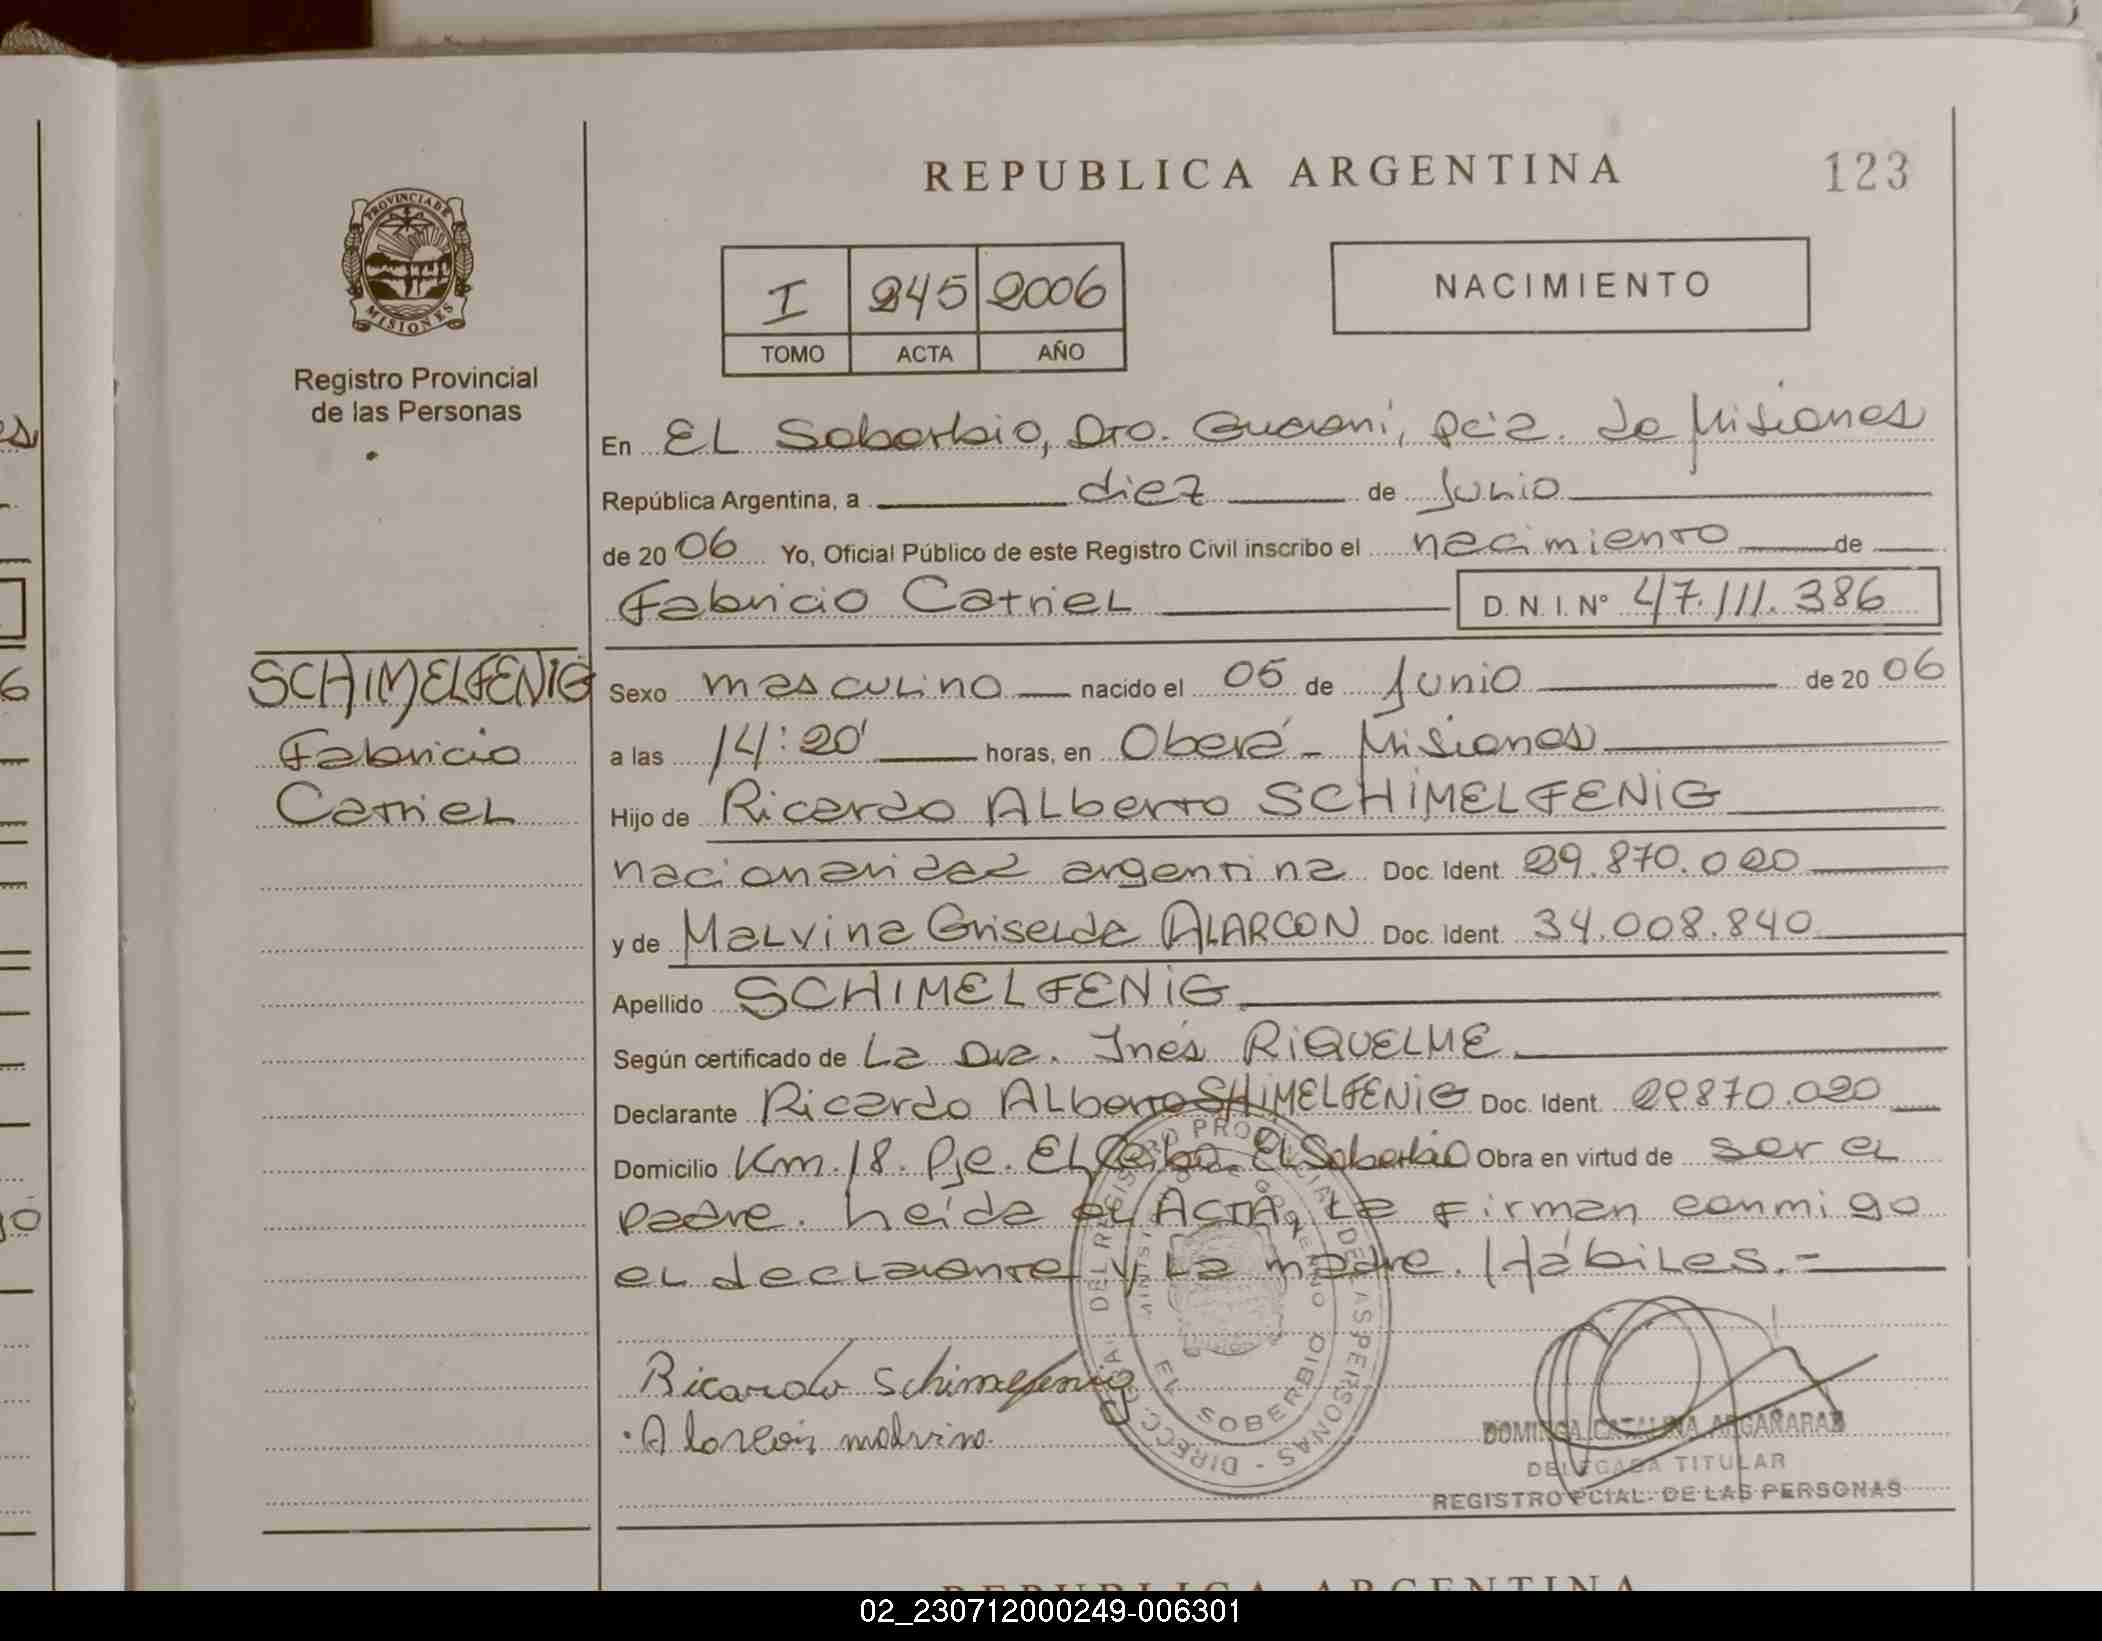 REPUBLICA ARGENTINA
123
PROVINCIA DE
MISIONES
Registro Provincial
de las Personas
I 245 2006
TOMO ACTA AÑO
NACIMIENTO
En EL Soberbio, Dto. Guaraní, Pcia. de Misiones
República Argentina, a diez de Junio
de 2006 Yo, Oficial Público de este Registro Civil inscribo el nacimiento de
Fabricio Catriel D. N. I. Nº 47.111.386
SCHIMELFENIG
Fabricio
Catriel
Sexo masculino nacido el 05 de Junio de 2006
a las 14:20' horas, en Oberá - Misiones
Hijo de Ricardo Alberto SCHIMELFENIG
nacionalidad argentina Doc. Ident. 29.870.020
y de Malvina Griselda ALARCON Doc. Ident. 34.008.840
Apellido SCHIMELFENIG
Según certificado de La Dra. Inés RIQUELME
Declarante Ricardo Alberto SHIMELFENIG Doc. Ident. 29870.020
Domicilio Km. 18. Pje. El Ceibo. El Soberbio Obra en virtud de ser el
padre. Leída el ACTA, la firman conmigo
el declarante y la madre. Hábiles.=
Ricardo Schimelfenig
Alarcón malvina
DIRECC. GRAL. DEL REGISTRO PROVINCIAL DE LAS PERSONAS -
MINISTERIO DE GOBIERNO
EL SOBERBIO
DOMINGA CATALINA ARGAÑARAS
DELEGADA TITULAR
REGISTRO PCIAL. DE LAS PERSONAS
REPUBLICA ARGENTINA
02_230712000249-006301